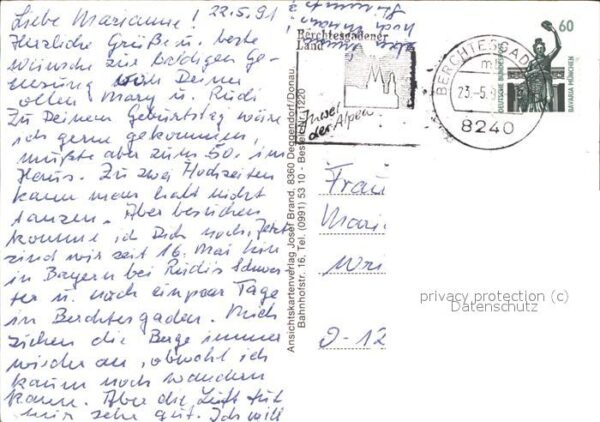 Liebe Marianne! 22.5.91
Herzliche Grüße u. beste
Wünsche zur baldigen Ge-
nesung von Deiner
alten Mary u. Rudi
Zu Deinem Geburtstag wäre
ich gerne gekommen,
mußte aber zum 50. im
Haus. Zu zwei Hochzeiten
kann man halt nicht
tanzen. Aber besuchen
komme ich Dich noch. Jetzt
sind wir seit 16. Mai hier
in Bayern bei Rudis Schwes-
ter u. noch ein paar Tage
in Berchtesgaden. Mich
ziehen die Berge immer
wieder an, obwohl ich
kaum noch wandern
kann. Aber die Luft tut
mir sehr gut. Ich will
noch
Ansichtskartenverlag Josef Brand, 8360 Deggendorf/Donau,
Bahnhofstr. 16, Tel. (0991) 53 10 - Bestell-Nr. 1220
Berchtesgadener
Land
Insel
der Alpen
BERCHTESGAD
23.-5.
8240
60
DEUTSCHE BUNDESPOST
BAVARIA MÜNCHEN
Frau
Mari
D-12
privacy protection (c)
Datenschutz